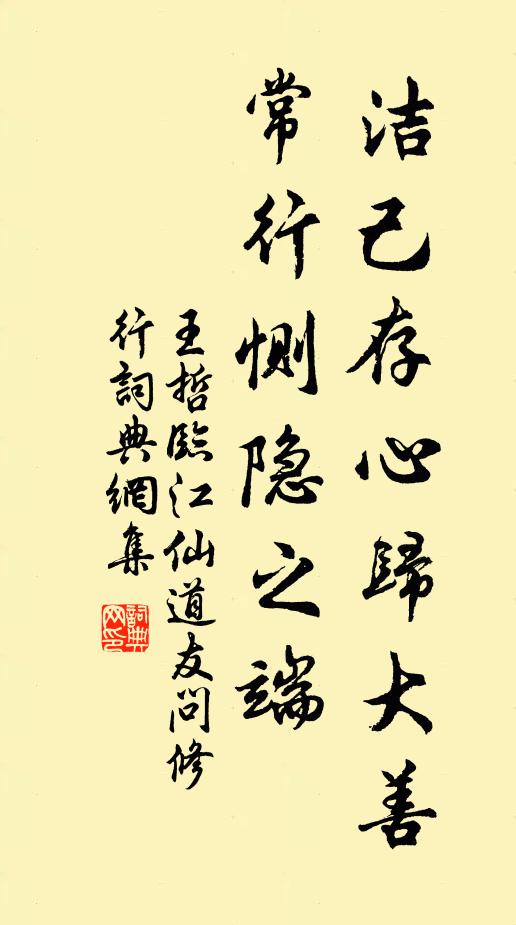 洁己存心歸大善
常行恻隐之端
王哲臨江仙道友问修
行詞典網集
詞典网印